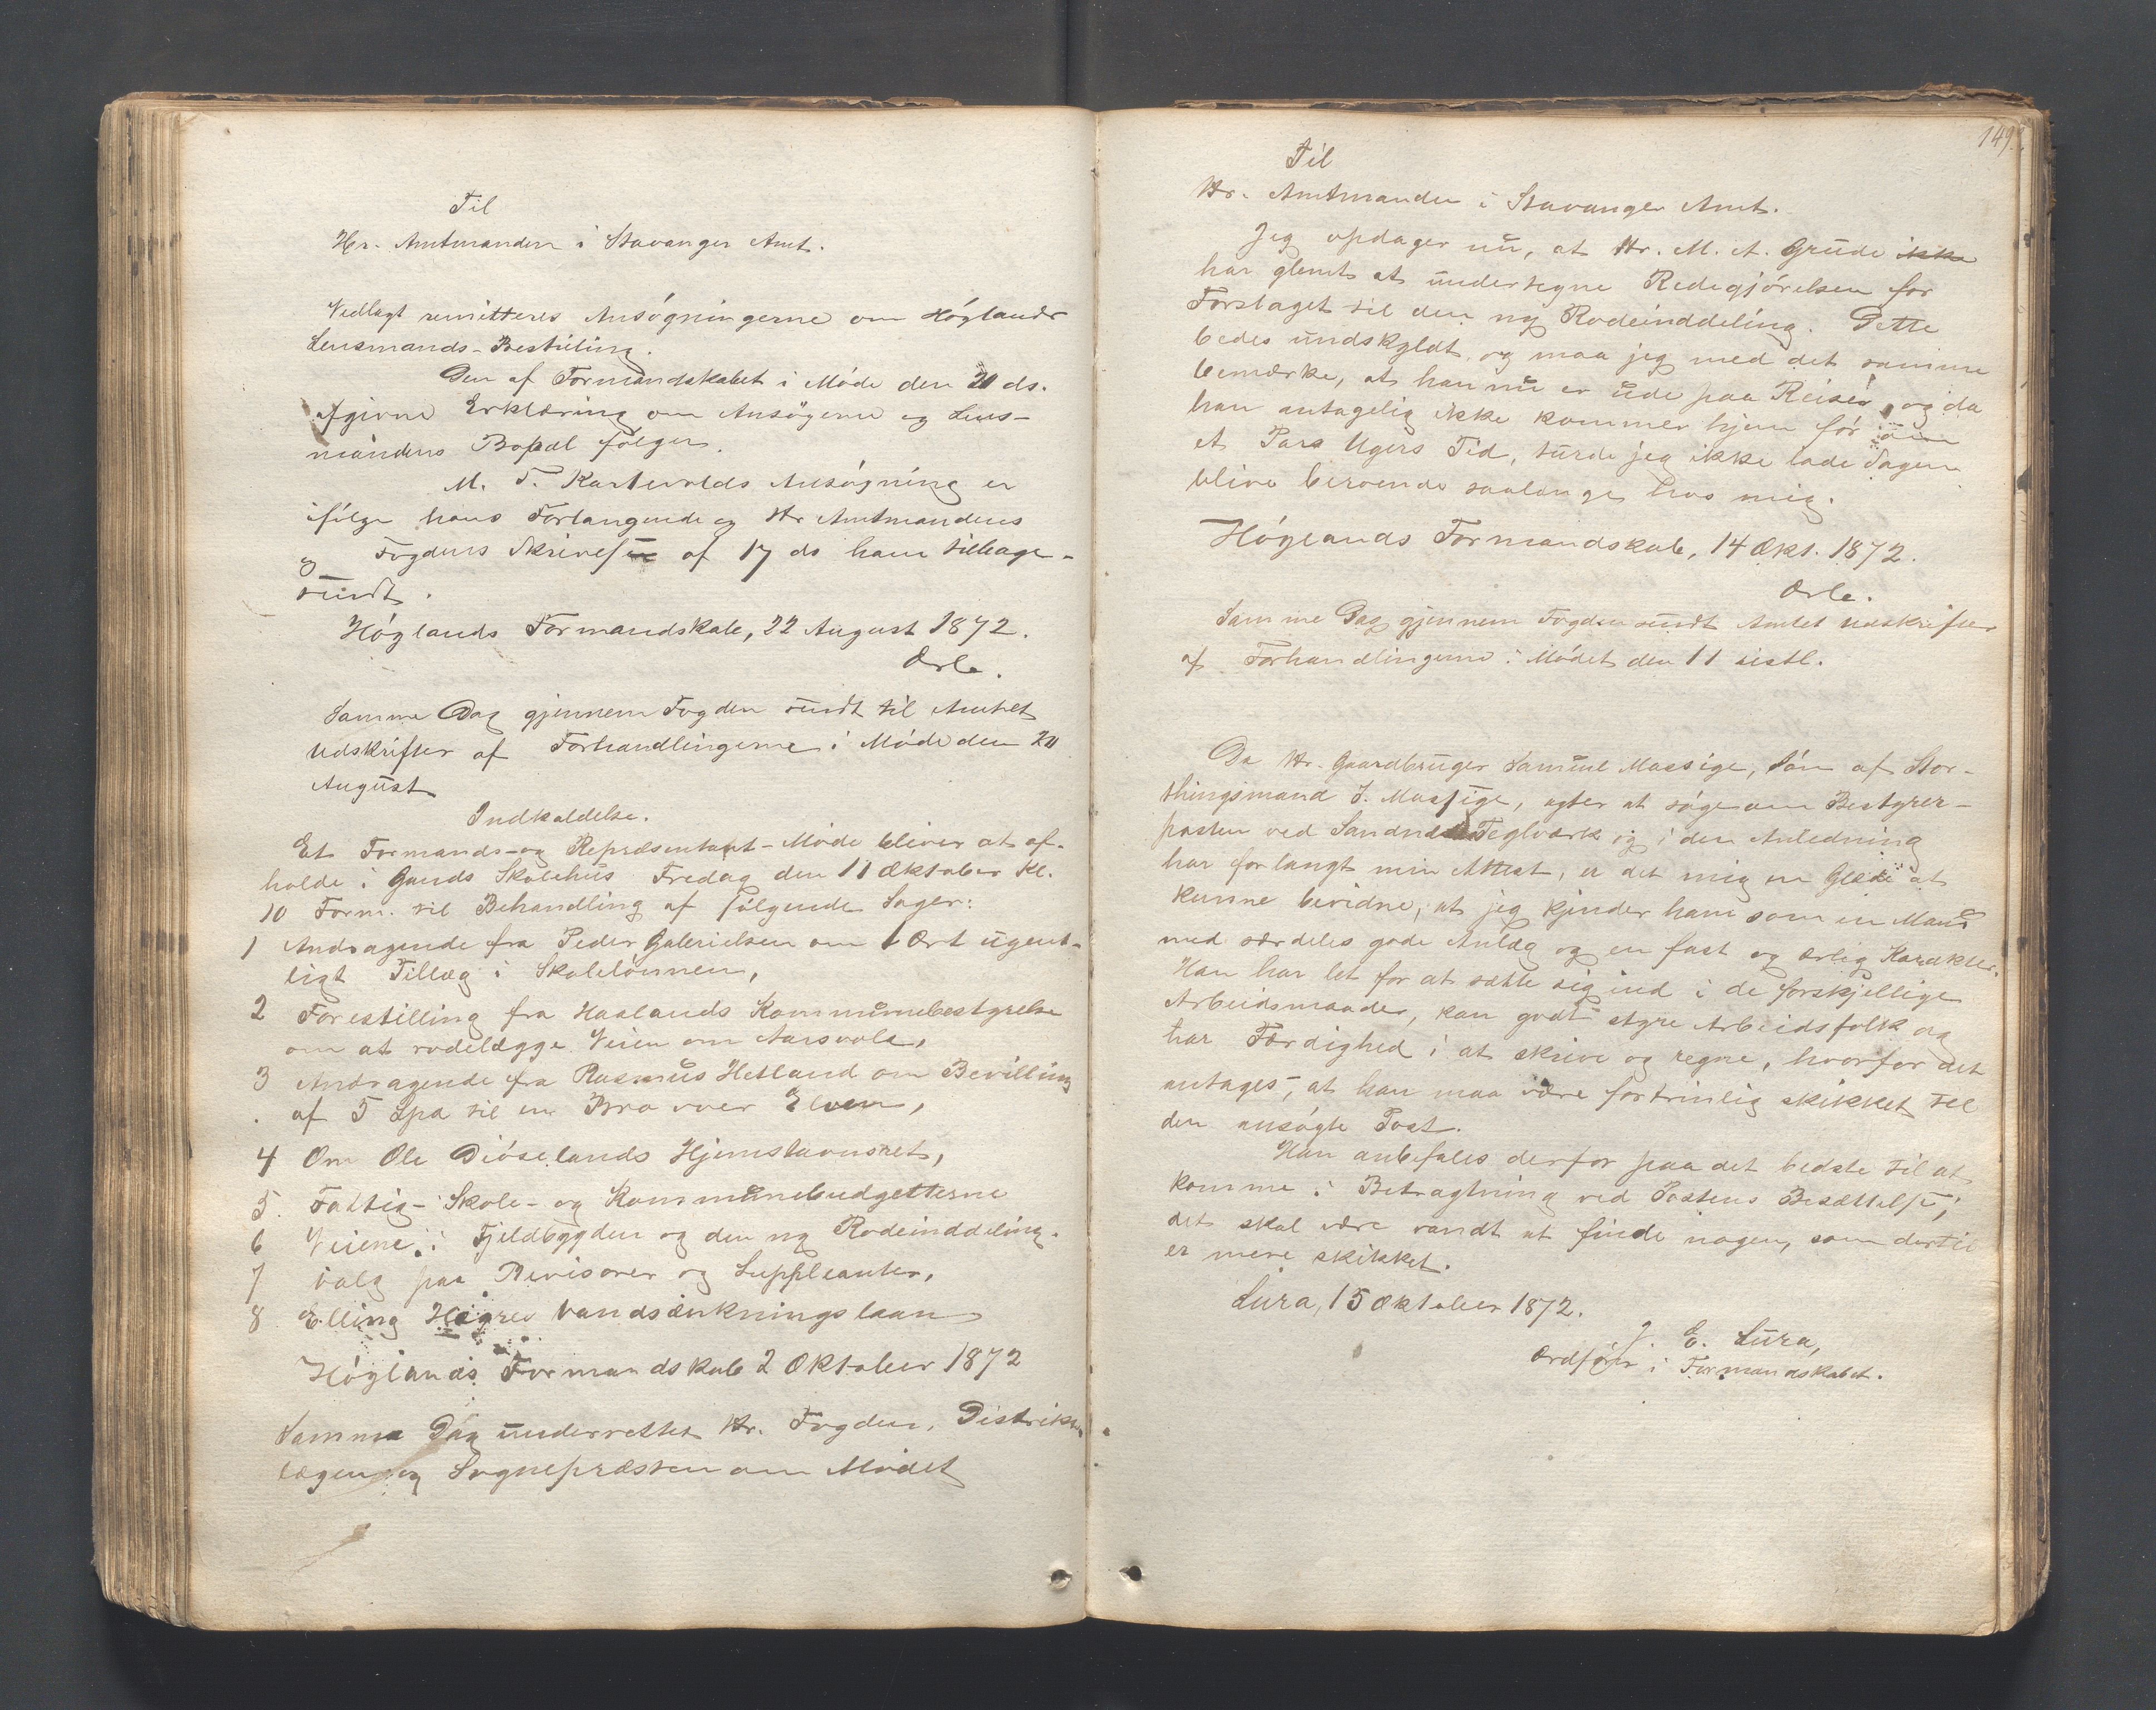 Til
Hr. Amtmanden i Stavanger Amt.
Vedlagt remitteres Ansøgningerne om Høglands
Lensmands-Bestilling.
Den af Formandskabet i Møde den 20 ds.
afgivne Erklæring om Ansøgerne og Lens-
mandens Bopæl følger.
M. T. Kartevolds Ansøgning er
ifølge hans Forlangende og Hr Amtmandens
og Fogdens Skrivelse af 17 ds ham tilbage-
sendt.
Høglands Formandskab, 22 August 1872.
Ordf.
Samme Dag gjennem Fogden sendt til Amtet
Udskrifter af Forhandlingerne i Møde den 20
August
Indkaldelse.
Et Formands- og Repræsentant-Møde bliver at af-
holde i Gands Skolehus Fredag den 11 Oktober Kl.
10 Form. til Behandling af følgende Sager:
1 Andragende fra Peder Gabrielsen om 1 Ort ugent-
ligt Tillæg i Skolelønnen,
2 Forestilling fra Haalands Kommunebestyrelse
om at rodelægge Veien om Aarsvold,
3 Andragende fra Rasmus Hetland om Bevilling
af 5 Spd til en Bro over Elven,
4 Om Ole Diøselands Hjemstavnsret,
5. Fattig- Skole- og Kommunebudgetterne
6 Veiene i Fjeldbygden og den ny Rodeinddeling.
7 Valg paa Revisorer og Suppleanter,
8 Elling Høgres Vandsænkningslaan
Høglands Formandskab 2 Oktober 1872
Samme Dag underrettet Hr. Fogden, Distrikts
lægen og Sognepræsten om Mødet
149
Til
Hr. Amtmanden i Stavanger Amt.
Jeg opdager nu, at Hr. M. A. Grude ikke
har glemt at undertegne Redegjørelsen for
Forslaget til den ny Rodeinddeling. Dette
bedes undskyldt, og maa jeg med det samme
bemærke, at han nu er ude paa Reiser, og da
han antagelig ikke kommer hjem før om
et Pars Ugers Tid, turde jeg ikke lade Sagen
blive beroende saalænge hos mig.
Høglands Formandskab, 14 Okt. 1872.
Ordf.
Samme Dag gjennem Fogden sendt Amtet Udskrifter
af Forhandlingerne i Mødet den 11 sistl.
Da Hr. Gaardbruger Samuel Massige, Søn af Stor-
thingsmand S. Massige, agter at søge om Bestyrer-
posten ved Sandnes Teglværk og i den Anledning
har forlangt min Attest, er det mig en Glæde at
kunne bevidne, at jeg kjender ham som en Mand
med særdeles gode Anlæg og en fast og ærlig Karakter.
Han har let for at sætte sig ind i de forskjellige
Arbeidsmaader, kan godt styre Arbeidsfolk og
har Færdighed i at skrive og regne, hvorfor det
antages, at han maa være fortrinlig skikket til
den ansøgte Post.
Han anbefales derfor paa det bedste til at
komme i Betragtning ved Postens Besættelse;
det skal være vandt at finde nogen, som dertil
er mere skikket.
Lura, 15 Oktober 1872.
J. E. Lura,
Ordfører i Formandskabet.